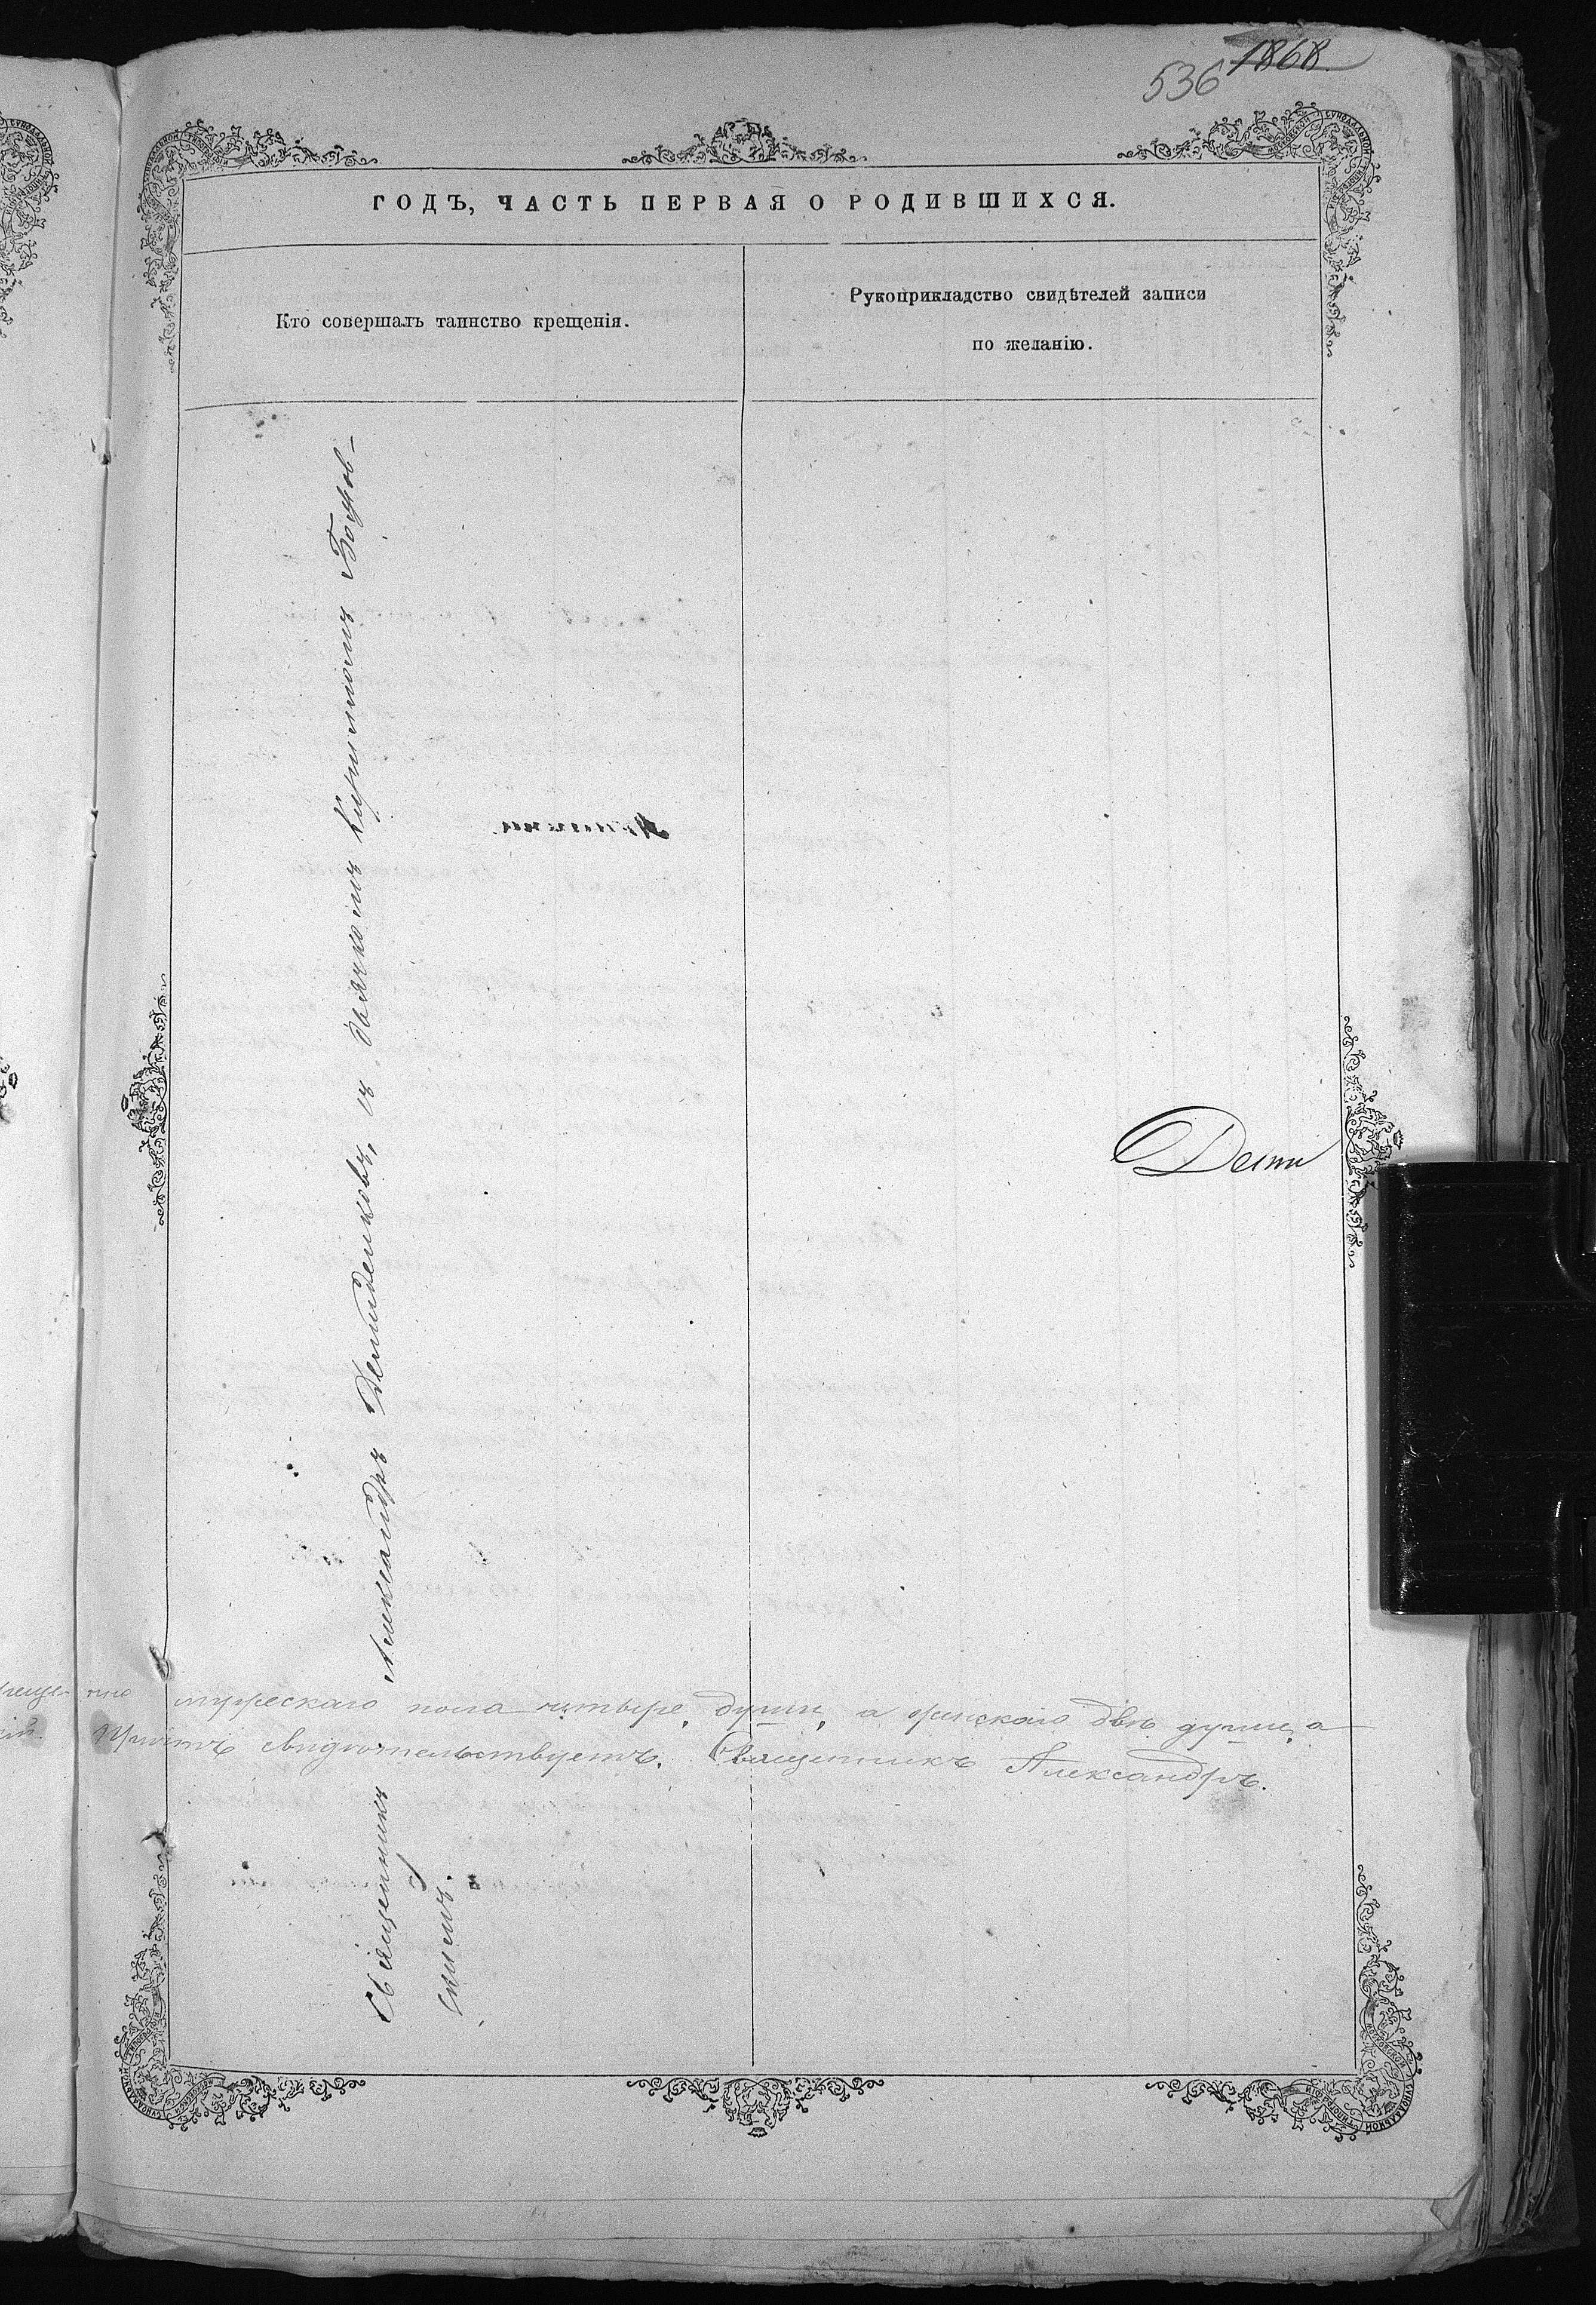 536 1868
ГОДЪ, ЧАСТЬ ПЕРВАЯ О РОДИВШИХСЯ.
Кто совершалъ таинство крещенія.
Рукоприкладство свидѣтелей записи
по желанію.
Священникъ Александръ Демиденковъ, съ дьячкомъ Кириломъ Божов-
скимъ.
мужескаго пола четыре души, а женскаго двѣ души, а
свидѣтельствуетъ. Священникъ Александръ.